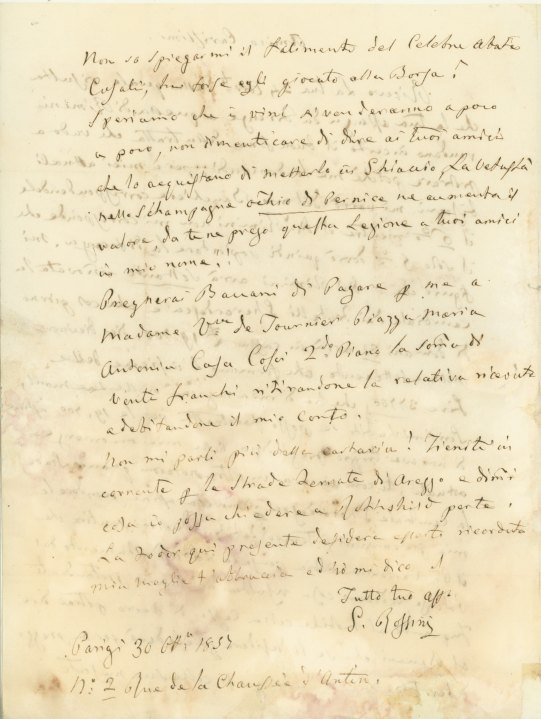 Non so spiegarmi il Falimento del Celebre Abate
Casati, ha forse egli giocato alla Borsa?
Speriamo che i vini si venderanno a poco
a poco, non dimenticare di dire ai tuoi amici
che lo acquistano di metterlo in Ghiaccio, La Vetustà
nello Schampagne ochio di Pernice ne aumenta il
valore, da te ne prego questa Legione a tuoi amici
in mio nome!
Pregherai Bavani di Pagare p me a
Madame Vve de Fournier Piazza Maria
Antonia Casa Cosci 2do Piano la soma di
venti franchi ritirandone la relativa ricevuta
e debitandone il mio conto.
Non mi parli più della cartaria! Tienti in
corrente p le Strade Ferrate di Arezzo e dimi
cosa io possa chiedere a Rothshild per te.
La qui presente desidera esserti ricordata
mia moglie t'abbraccia ed io mi dico il
Tutto tuo affo
G. Rossini
Parigi 30 1857
No 2 Rue de la Chaussée d'Antin.